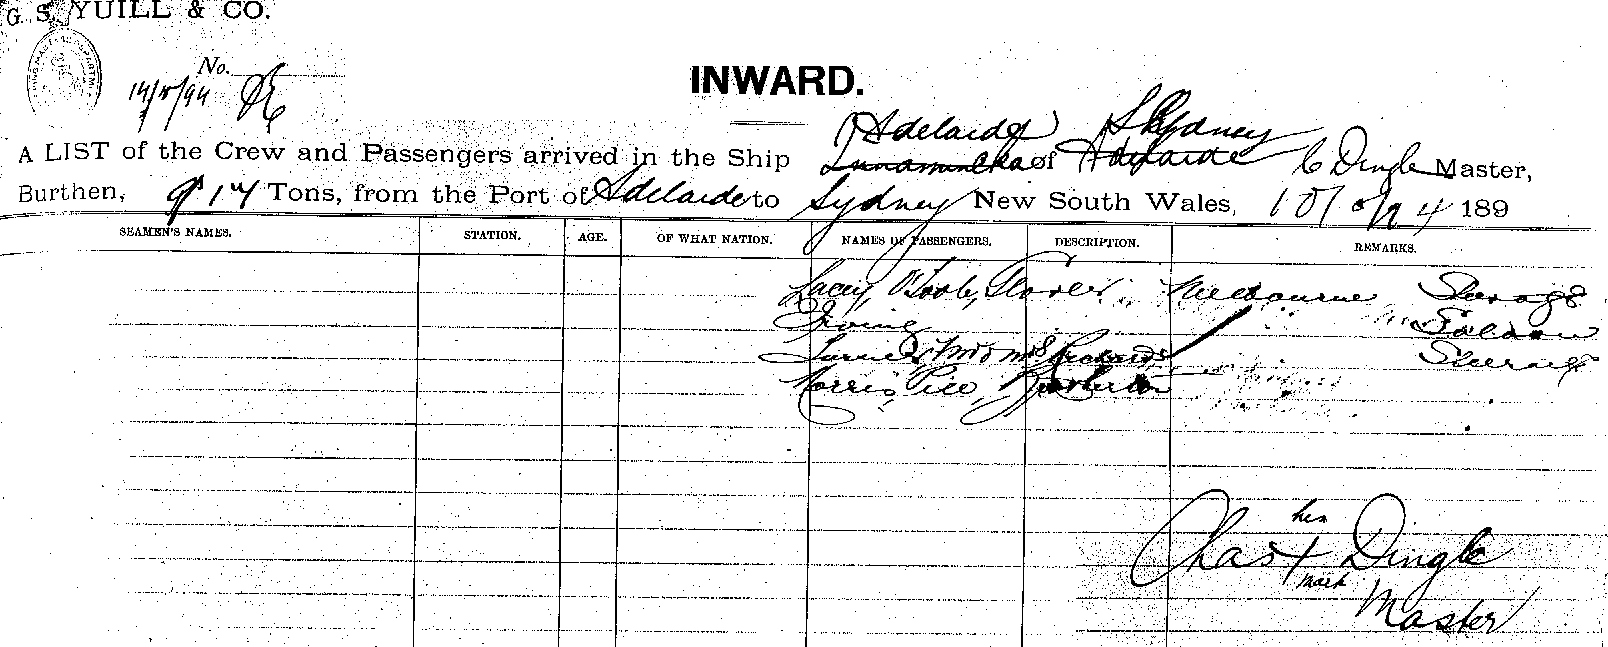 G. S. YUILL & CO.
No.
INWARD.
(Adelaide) Sydney
A LIST of the Crew and Passengers arrived in the Ship Innamincka of Adelaide C Dingle Master,
Burthen, 917 Tons, from the Port of Adelaide to Sydney New South Wales, 189
SEAMEN'S NAMES. STATION. AGE. OF WHAT NATION. NAMES OF PASSENGERS. DESCRIPTION. REMARKS.
Lacey, O'Toole, Melbourne Steerage
Irving Saloon
Turner, Mr & Mrs Steerage
Morris, Rice,
his
Chas X Dingle
mark
Master